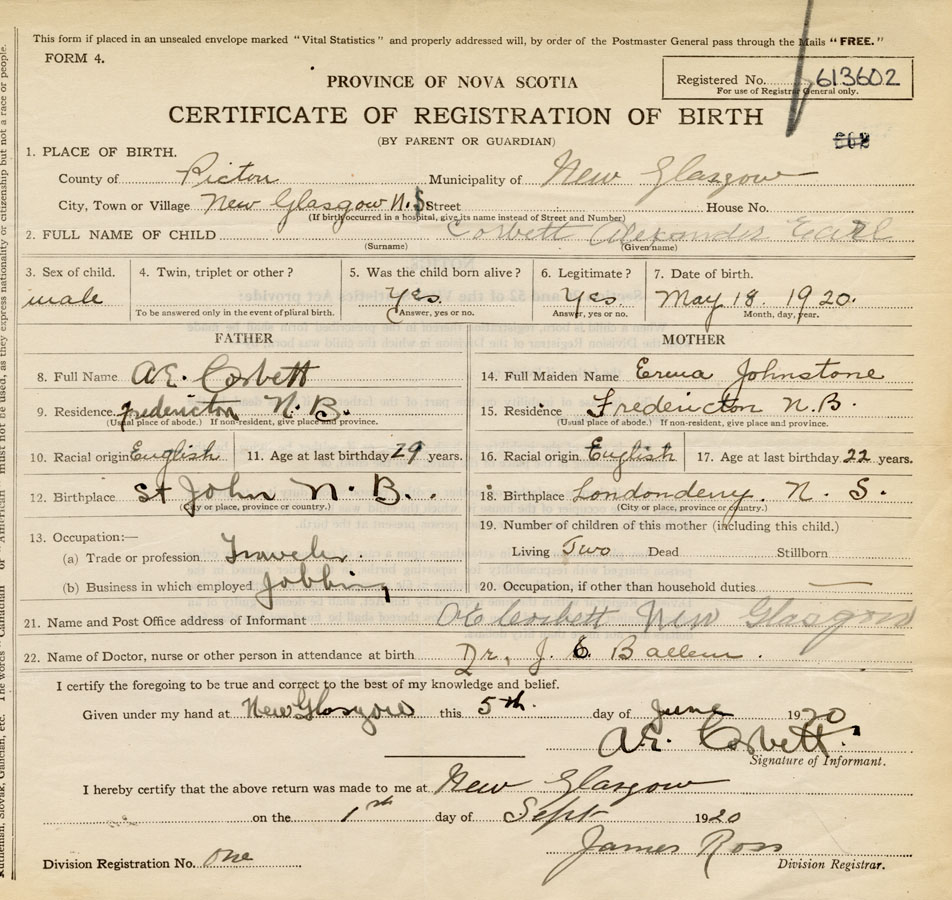 This form if placed in an unsealed envelope marked "Vital Statistics" and properly addressed will, by order of the Postmaster General pass through the Mails "FREE."
FORM 4.
PROVINCE OF NOVA SCOTIA
Registered No. 613602
For use of Registrar General only.
CERTIFICATE OF REGISTRATION OF BIRTH
(BY PARENT OR GUARDIAN)
1. PLACE OF BIRTH.
County of Pictou Municipality of New Glasgow
City, Town or Village New Glasgow N.S Street House No.
(If birth occurred in a hospital, give its name instead of Street and Number)
2. FULL NAME OF CHILD Corbett Alexander Earl
(Surname) (Given name)
3. Sex of child. 4. Twin, triplet or other? 5. Was the child born alive? 6. Legitimate? 7. Date of birth.
male Yes. Yes. May 18. 1920.
To be answered only in the event of plural birth. Answer, yes or no. Answer, yes or no. Month, day, year.
FATHER MOTHER
8. Full Name A.E. Corbett 14. Full Maiden Name Erma Johnstone
9. Residence. Fredericton N. B. 15. Residence Fredericton N.B.
(Usual place of abode.) If non-resident, give place and province. (Usual place of abode.) If non-resident, give place and province.
10. Racial origin English 11. Age at last birthday 29 years. 16. Racial origin English 17. Age at last birthday 22 years.
12. Birthplace St John N. B. 18. Birthplace Londonderry. N. S.
(City or place, province or country.) (City or place, province or country.)
19. Number of children of this mother (including this child.)
13. Occupation:—
(a) Trade or profession Traveler. Living Two Dead Stillborn
(b) Business in which employed Jobbing 20. Occupation, if other than household duties —
21. Name and Post Office address of Informant AE Corbett New Glasgow
22. Name of Doctor, nurse or other person in attendance at birth Dr. J.
I certify the foregoing to be true and correct to the best of my knowledge and belief.
Given under my hand at New Glasgow this 5th. day of June 1920
A.E. Corbett.
Signature of Informant.
I hereby certify that the above return was made to me at New Glasgow
on the 1st day of Sept 1920
James Ross
Division Registration No. one Division Registrar.